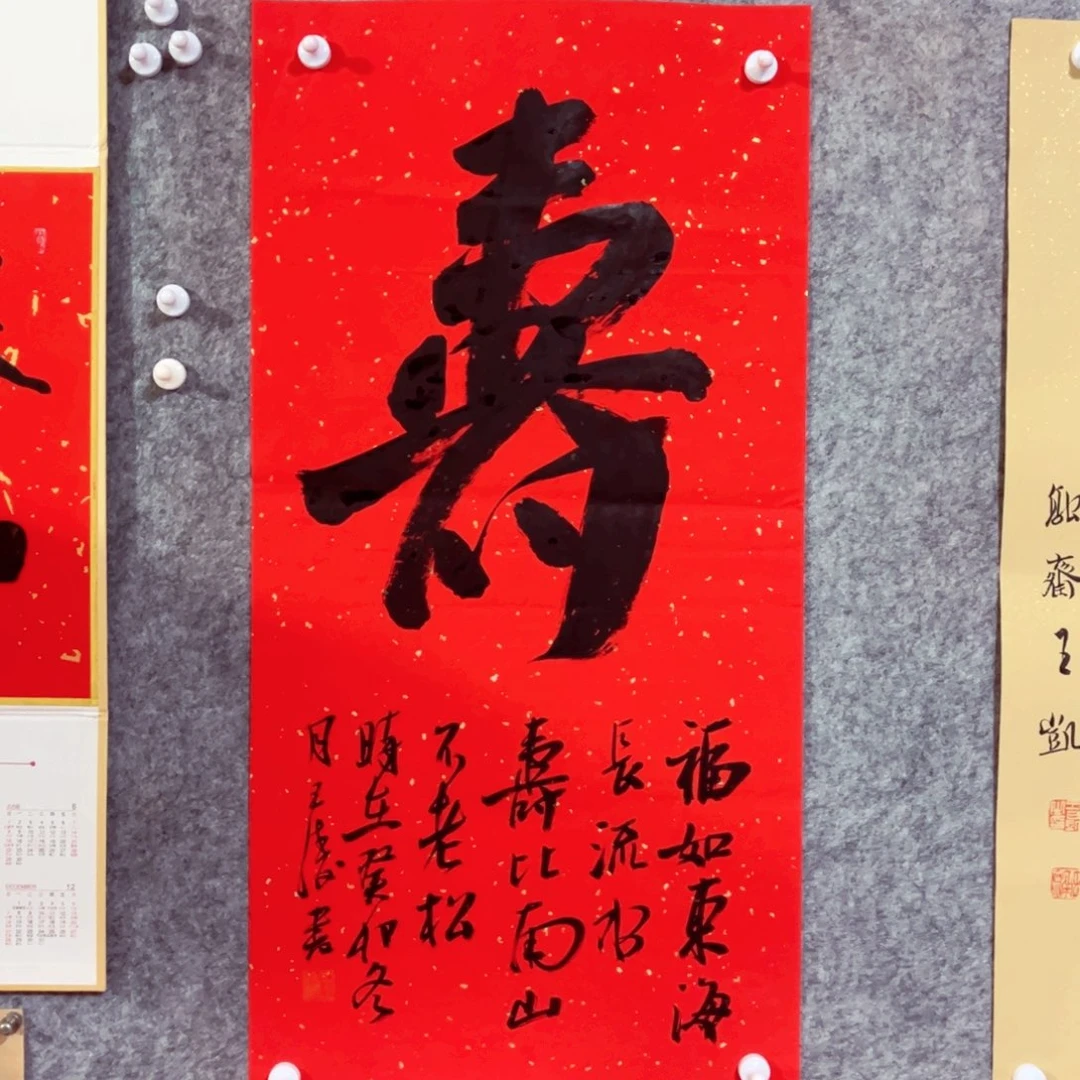 壽
福如東海
長流水
壽比南山
不老松
時在癸卯冬
月王
書
齋王
凱